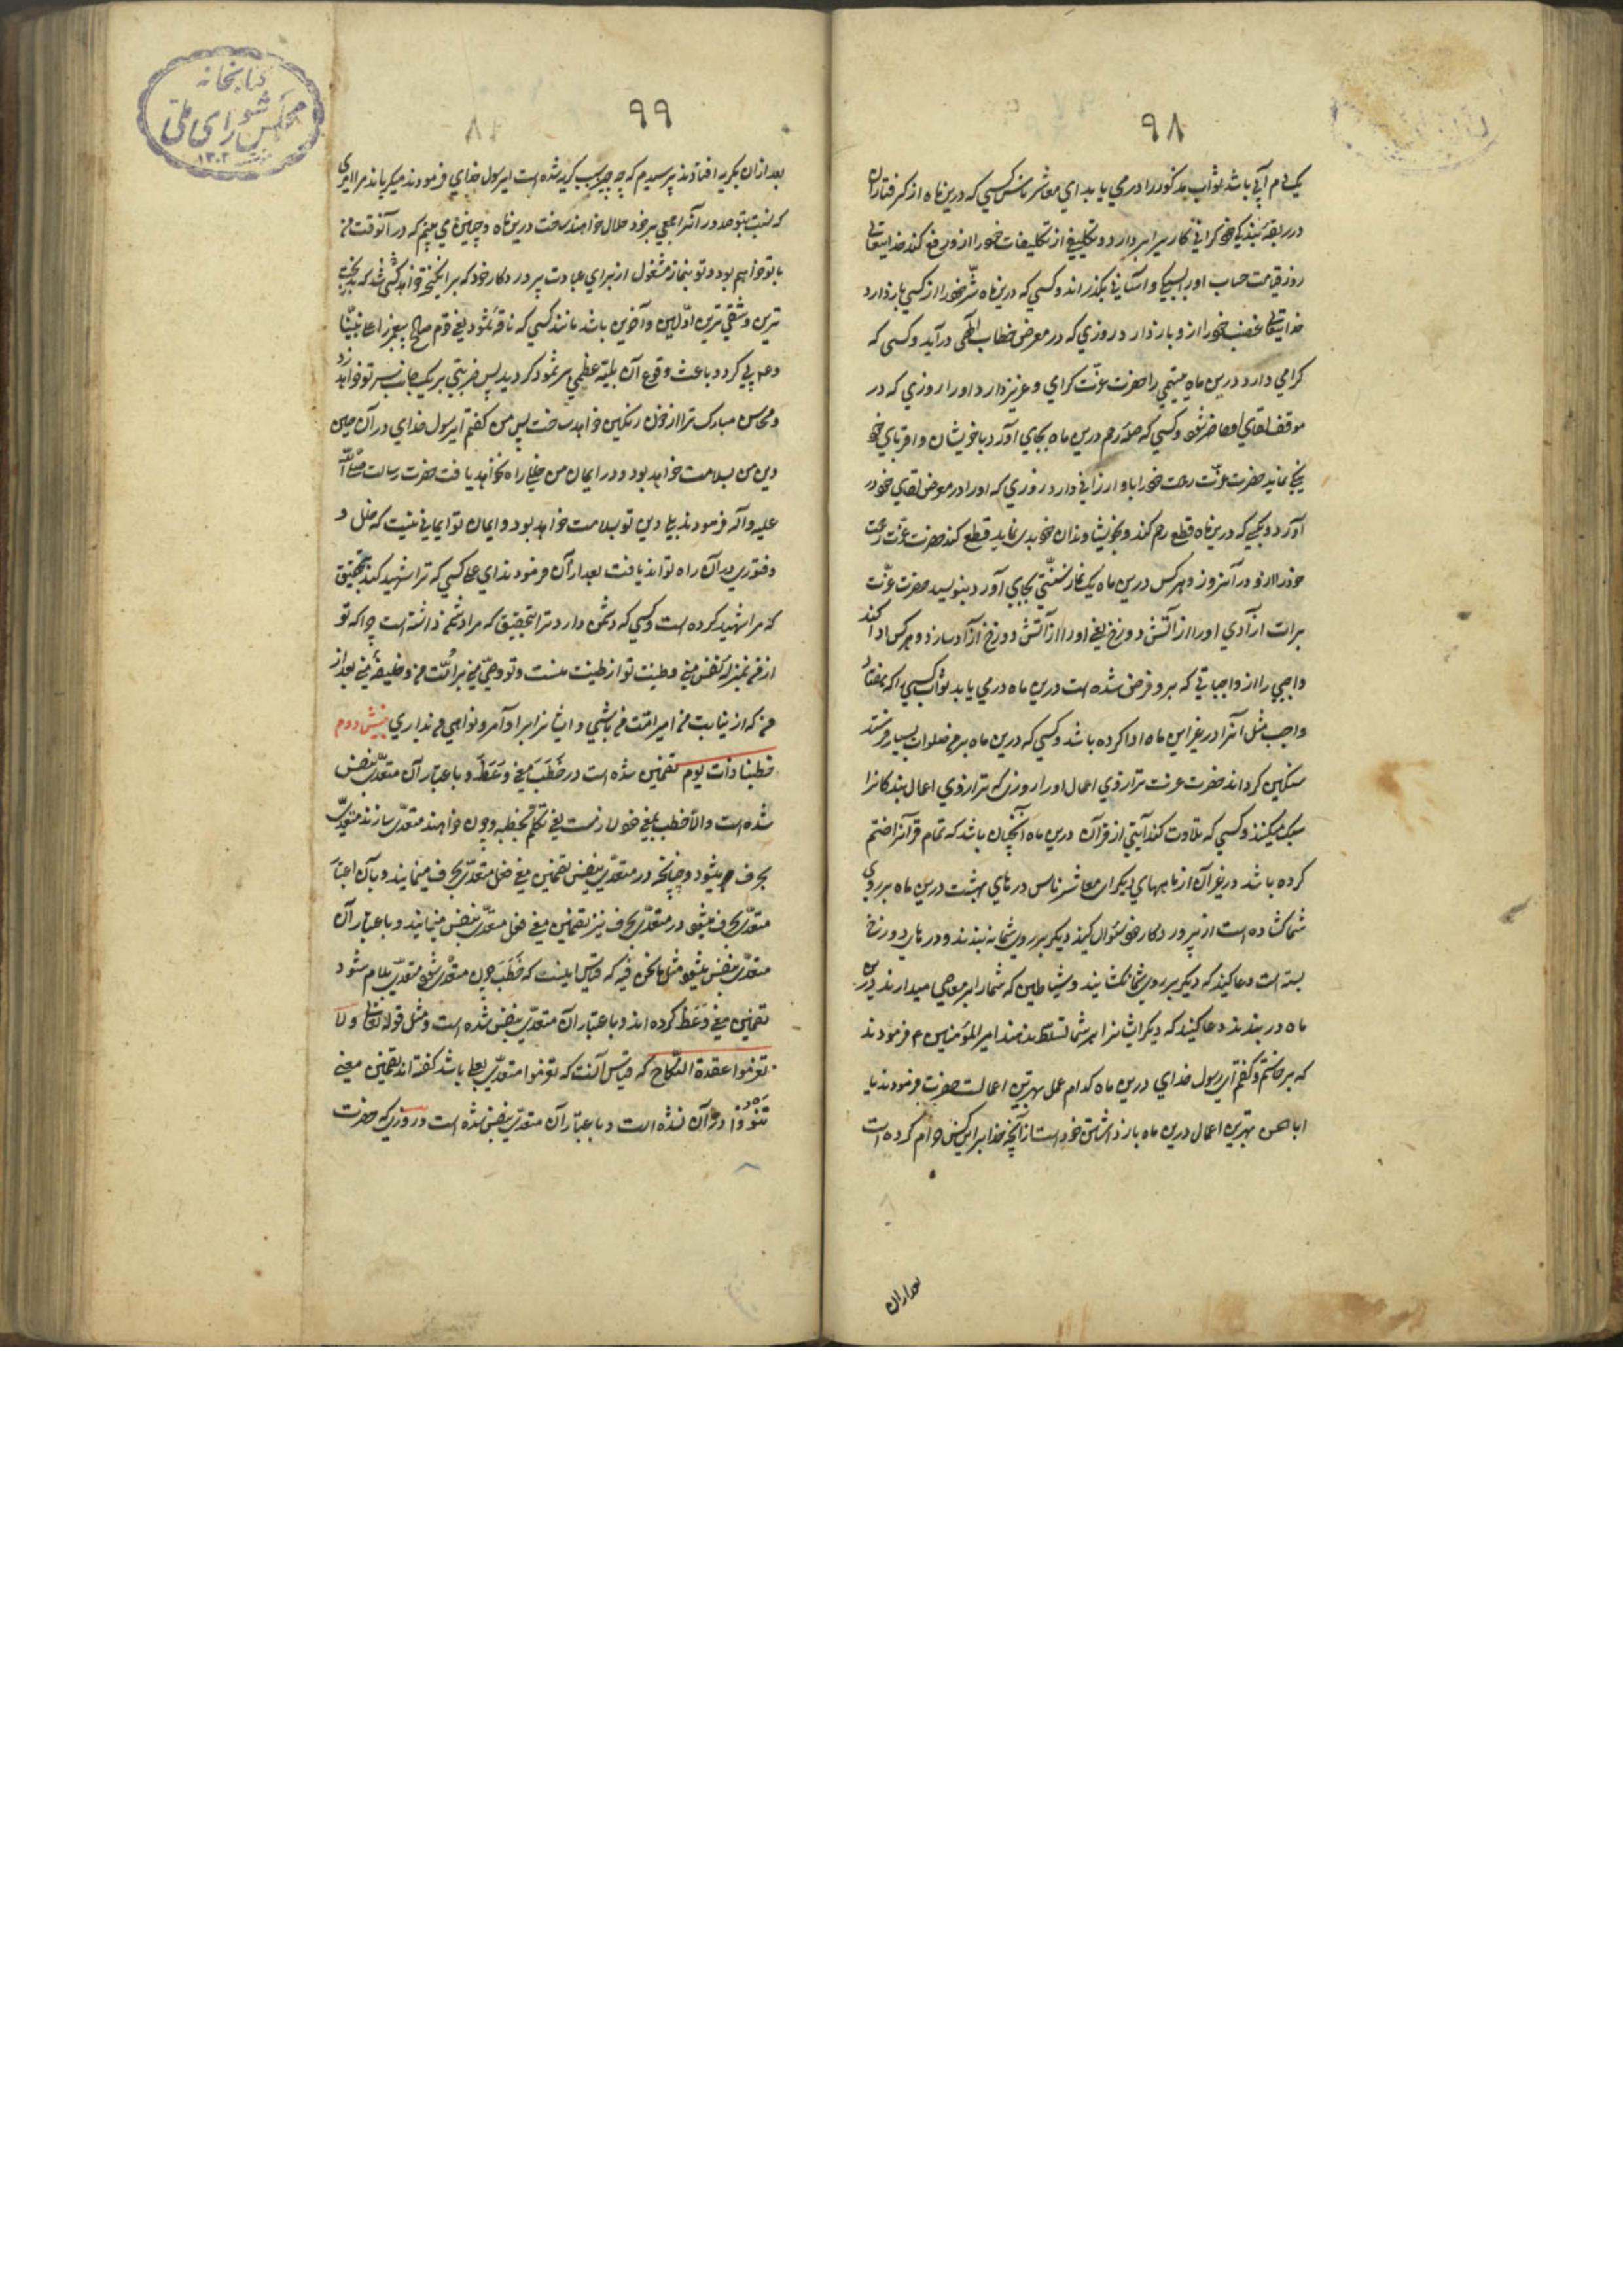 ٩٨
یک دم آبی باشد ثواب مذکور را درمی یابد ای معاشر ناس کسی که درین ماه از گرفتاران
در ربقه بندگی خود گرانی کاری بردارد و تکلیفی از تکلیفات خود را ازو رفع کند خدایتعالی
روز قیامت حساب او را بسبکی و آسانی بگذراند و کسی که درین ماه شر خود را از کسی بازدارد
خدایتعالی غضب خود را ازو بازدارد روزی که در معرض خطاب الهی درآید و کسی که
گرامی دارد درین ماه یتیمی را حضرت عزت گرامی و عزیز دارد او را روزی که در
موقف لقای او حاضر شود و کسی که صله رحم درین ماه بجای آورد با خویشان و اقربای خود
نماید حضرت عزت رحمت خود را باو ارزانی دارد روزی که او را در معرض لقای خود در
آورد و کسی که درین ماه قطع رحم کند و بخویشاوندان خود بدی نماید قطع کند حضرت عزت رحمت
خود را ازو در آنروز و هر کس درین ماه یک نماز سنتی بجای آورد بنویسد حضرت عزت
برات آزادی او را از آتش دوزخ یعنی او را از آتش دوزخ آزاد سازد و هر کس ادا کند
واجبی را از واجباتی که برو فرض شده است درین ماه درمی یابد ثواب کسی را که هفتاد
واجب مثل آنرا در غیر این ماه ادا کرده باشد و کسی که درین ماه بر من صلوات بسیار فرستد
سنگین گرداند حضرت عزت ترازوی اعمال او را روزی که ترازوی اعمال بندگانرا
سبک میکنند و کسی که تلاوت کند آیتی از قرآن درین ماه آنچنان باشد که تمام قرآنرا ختم
کرده باشد در غیر آن از ماههای دیگر ای معاشر ناس درهای بهشت درین ماه بر روی
شما گشاده است از پروردگار خود سؤال کنید که دیگر بر روی شما نه بندند و درهای دوزخ
بسته است دعا کنید که دیگر بر روی شما نگشایند و شیاطین که شما را بر معاصی میدارند درین
ماه در بندند دعا کنید که دیگر ایشانرا بر شما تسلط ندهند امیر المؤمنین ع فرمودند
که برخاستم و گفتم ای رسول خدای درین ماه کدام عمل بهترین اعمالست حضرت فرمودند یا
ابا الحسن بهترین اعمال درین ماه بازداشتن خود است از آنچه خدا بر این کس حرام کرده است
بعد از آن
٩٩
بعد از آن بگریه افتادند پرسیدم که چه چیز سبب گریه شده است ای رسول خدای فرمودند میگریاند مرا امری
که نسبت بتو صدور آنرا جمعی بر خود حلال خواهند ساخت درین ماه و چنین می بینم که در آنوقت من
با تو خواهم بود و تو بنماز مشغول از برای عبادت پروردگار خود که برانگیخته خواهد شد که بدبخت
ترین و شقی ترین اولین و آخرین باشد مانند کسی که ناقه ثمود یعنی قوم صالح پیغمبر را علی نبینا
و ع پی کرد و باعث وقوع آن بلیه عظمی بر ثمود گردید پس ضربتی بر یک جانب سر تو خواهد زد
و محاسن مبارک ترا از خون رنگین خواهد ساخت پس من گفتم ای رسول خدای در آن حین
دین من بسلامت خواهد بود و در ایمان من خللی راه نخواهد یافت حضرت رسالت صلی الله
علیه و آله فرمودند بلی دین تو بسلامت خواهد بود و ایمان تو ایمانی نیست که خلل و
و فتوری در آن راه تواند یافت بعد از آن فرمودند ای علی کسی که ترا شهید کند بتحقیق
که مرا شهید کرده است و کسی که دشمن دارد ترا بتحقیق که مرا دشمن داشته است چرا که تو
از من بمنزله نفس منی و طینت تو از طینت منست و تو وصی منی بر امت من و خلیفه منی بعد از
من که از نیابت من امیر امت من باشی و ایشانرا بر اوامر و نواهی من بداری بینش دوم
خطبنا ذات یوم تضمین شده است در خطب معنی وعظ و باعتبار آن متعدی بنفس
شده است و الا خطب بمعنی خود لازمست یعنی تکلم بخطبه و چون خواهند متعدی سازند متعدی
بحرف میشود و چنانچه در متعدی بنفس تضمین معنی فعل متعدی بحرف مینمایند و بآن اعتبار
متعدی بحرف میشود در متعدی بحرف نیز تضمین معنی فعل متعدی بنفس مینمایند و باعتبار آن
متعدی بنفس میشود مثل ما نحن فیه که قیاس اینست که خطب چون متعدی شود متعدی بلام شود
تضمین معنی وعظ کرده اند و باعتبار آن متعدی بنفس شده است و مثل قوله تعالی و لا
تعزموا عقدة النکاح که قیاس آنست که تعزموا متعدی بعلی باشد گفته اند تضمین معنی
تنووا در آن شده است و باعتبار آن متعدی بنفس شده است در روزی که حضرت
کتابخانه
مجلس شورای ملی
١٣٠٢